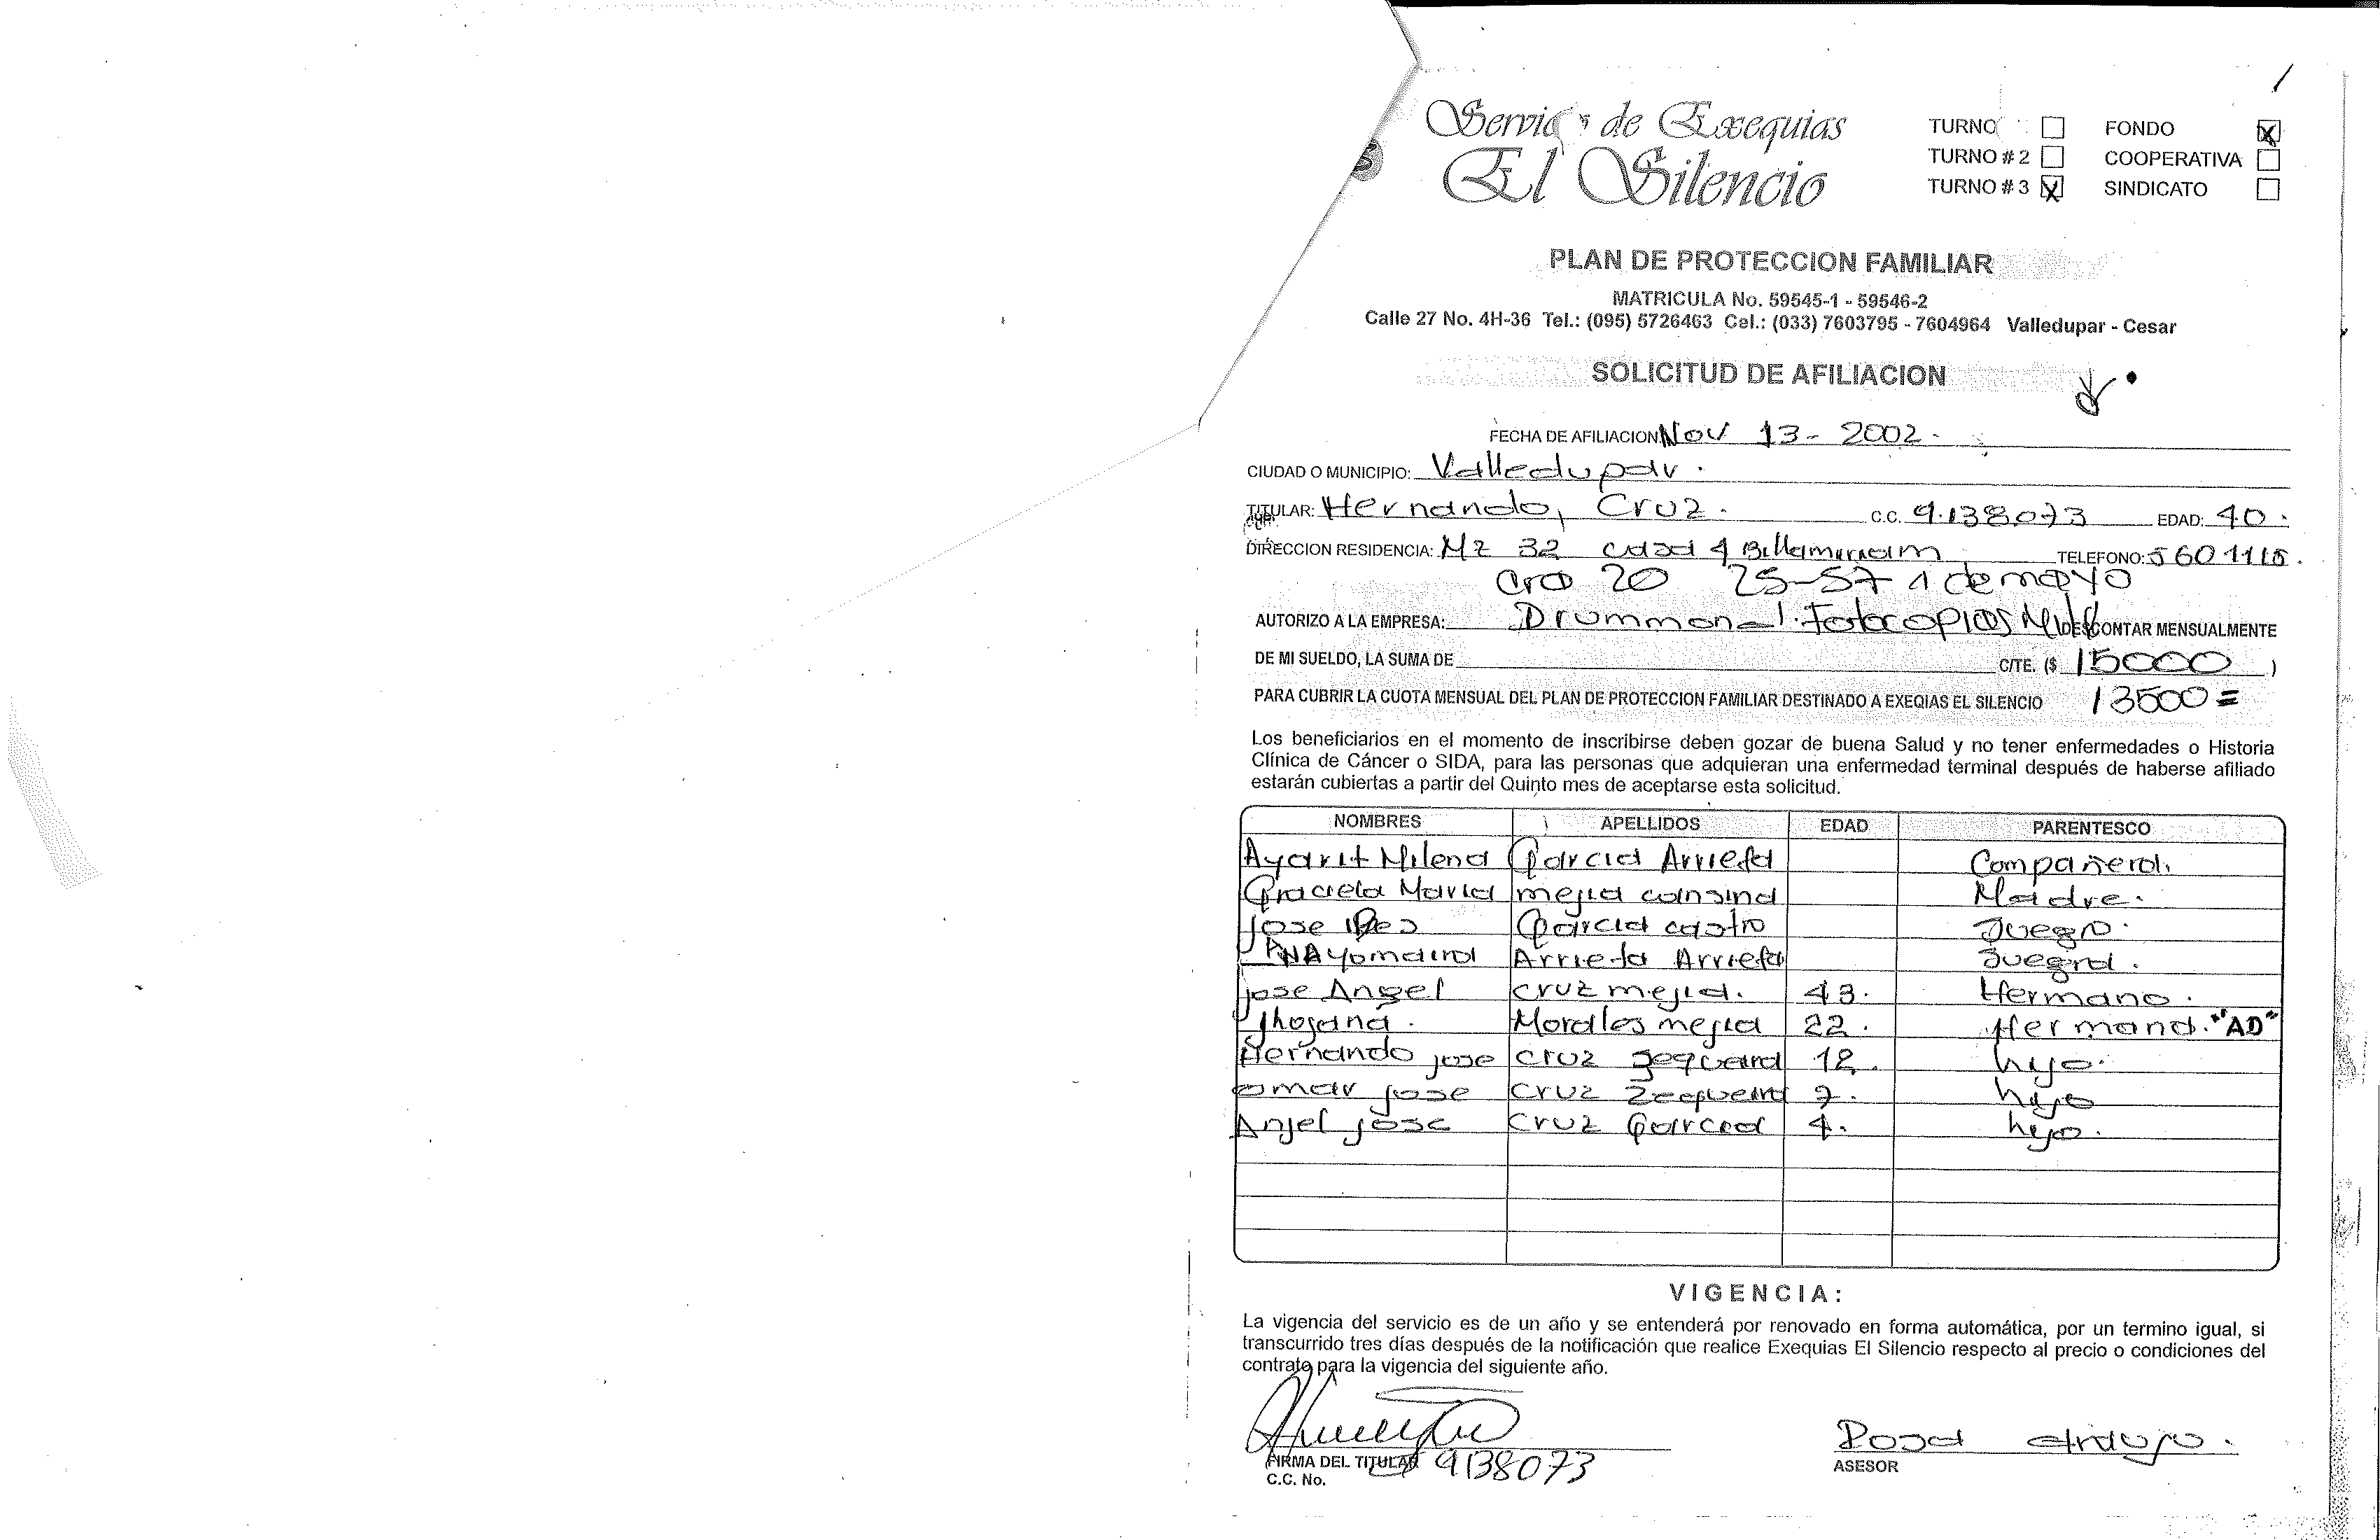 Servici s de Exequias
El Silencio
TURNO ☐ FONDO ☒
TURNO # 2 ☐ COOPERATIVA ☐
TURNO # 3 ☒ SINDICATO ☐
PLAN DE PROTECCION FAMILIAR
MATRICULA No. 59545-1 - 59546-2
Calle 27 No. 4H-36 Tel.: (095) 5726463 Cel.: (033) 7603795 - 7604964 Valledupar - Cesar
SOLICITUD DE AFILIACION
FECHA DE AFILIACION Nov 13 - 2002.
CIUDAD O MUNICIPIO: Valledupar.
TITULAR: Hernando, Cruz. C.C. 9.138.073 EDAD: 40.
DIRECCION RESIDENCIA: Mz 32 casa 4 TELEFONO: 5601115.
Cra 20 25-57 1 de mayo
AUTORIZO A LA EMPRESA: Drummond. Fotocopias DESCONTAR MENSUALMENTE
DE MI SUELDO, LA SUMA DE CITE. ($ 15000 )
PARA CUBRIR LA CUOTA MENSUAL DEL PLAN DE PROTECCION FAMILIAR DESTINADO A EXEQIAS EL SILENCIO 13500=
Los beneficiarios en el momento de inscribirse deben gozar de buena Salud y no tener enfermedades o Historia
Clínica de Cáncer o SIDA, para las personas que adquieran una enfermedad terminal después de haberse afiliado
estarán cubiertas a partir del Quinto mes de aceptarse esta solicitud.
NOMBRES APELLIDOS EDAD PARENTESCO
Ayarit Milena Garcia Arrieta Compañera.
Graciela Maria mejia cansina Madre.
Jose Garcia castro Suegro.
ANA Yomaira Arrieta Arrieta Suegra.
jose Angel cruz mejia. 43. Hermano.
jhojana. Morales mejia 22. Hermana. "AD"
Hernando jose cruz zequeira 12. hijo.
omar jose cruz Zequeira 7. hijo
Anjel jose cruz Garcea 4. hijo.
VIGENCIA:
La vigencia del servicio es de un año y se entenderá por renovado en forma automática, por un termino igual, si
transcurrido tres días después de la notificación que realice Exequias El Silencio respecto al precio o condiciones del
contrato para la vigencia del siguiente año.
Rosa araujo.
FIRMA DEL TITULAR 9138073
ASESOR
C.C. No.